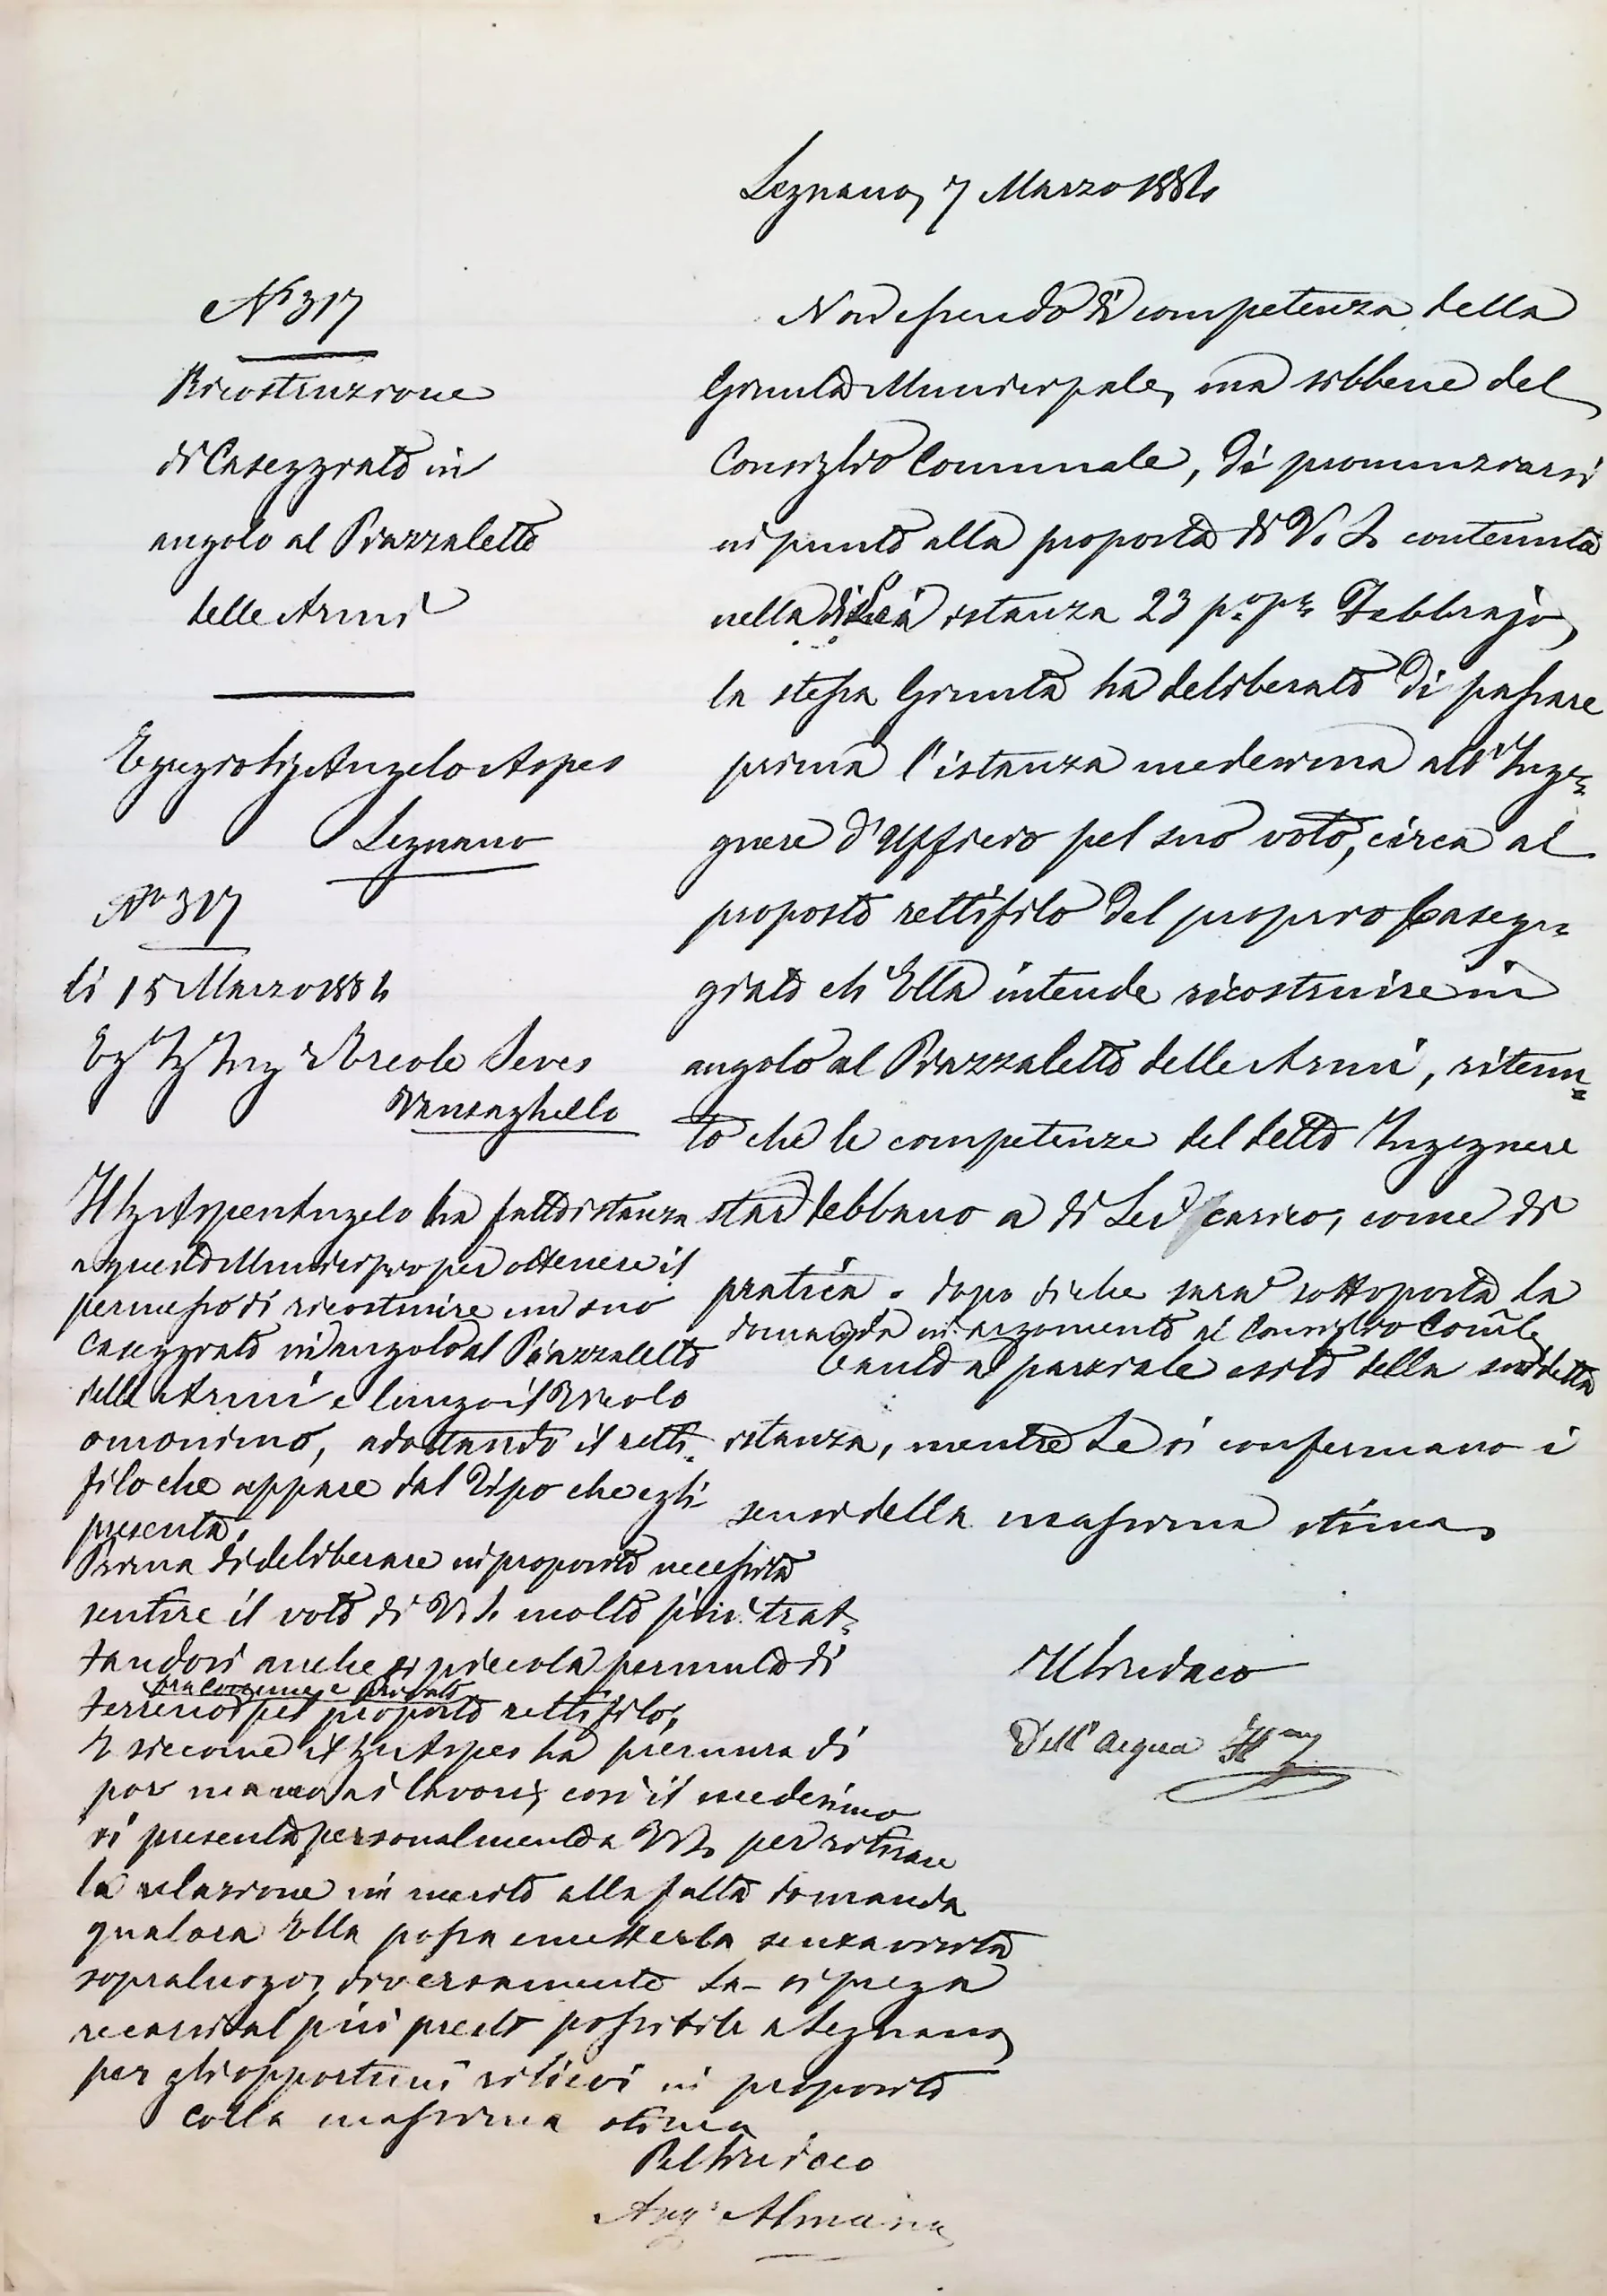 Legnano, 7 Marzo 1884
N° 317
Ricostruzione
di Caseggiato in
angolo al Piazzaletto
delle Armi
Egregio Sig. Angelo Aspes
Legnano
Non essendo di competenza della
Giunta Municipale, ma sibbene del
Consiglio Comunale, di pronunziarsi
in punto alla proposta di V. S. contenuta
nella di Lei istanza 23 p.° p.° Febbrajo,
la stessa Giunta ha deliberato di passare
prima l'istanza medesima all'Inge-
gnere d'Ufficio pel suo voto, circa al
proposto rettifilo del proprio caseg-
giato ch'Ella intende ricostruire in
angolo al Piazzaletto delle Armi, ritenu-
to che le competenze del detto Ingegnere
star debbano a di Lei carico, come di
pratica. dopo di che sarà sottoposta la
domanda in argomento al Consiglio Com.le
Tanto a parziale esito della suddetta
istanza, mentre Le si confermano i
sensi della massima stima.
Il Sindaco
Dell'Acqua
N° 317
li 15 Marzo 1884
Eg. Sig. Ing. Ercole Seves
Vanzaghello
Il Sig. Aspes Angelo ha fatto istanza
a questo Municipio per ottenere il
permesso di ricostruire un suo
caseggiato in angolo al Piazzaletto
delle Armi e lungo il Vicolo
omonimo, adottando il retti-
filo che appare dal Tipo che egli
presenta.
Prima di deliberare in proposito necessita
sentire il voto di V. S. molto più trat-
tandosi anche di piccola permuta di
fra Comune e Privato
terreno pel proposto rettifilo.
E siccome il Sig. Aspes ha premura di
por mano ai lavori, così il medesimo
si presenta personalmente a V. S. per ritirare
la relazione in merito alla fatta domanda
qualora Ella possa emetterla senza visita
sopraluogo, diversamente La si prega
recarsi al più presto possibile a Legnano
per gli opportuni rilievi in proposito
Colla massima stima
Pel Sindaco
Ang° Almasio